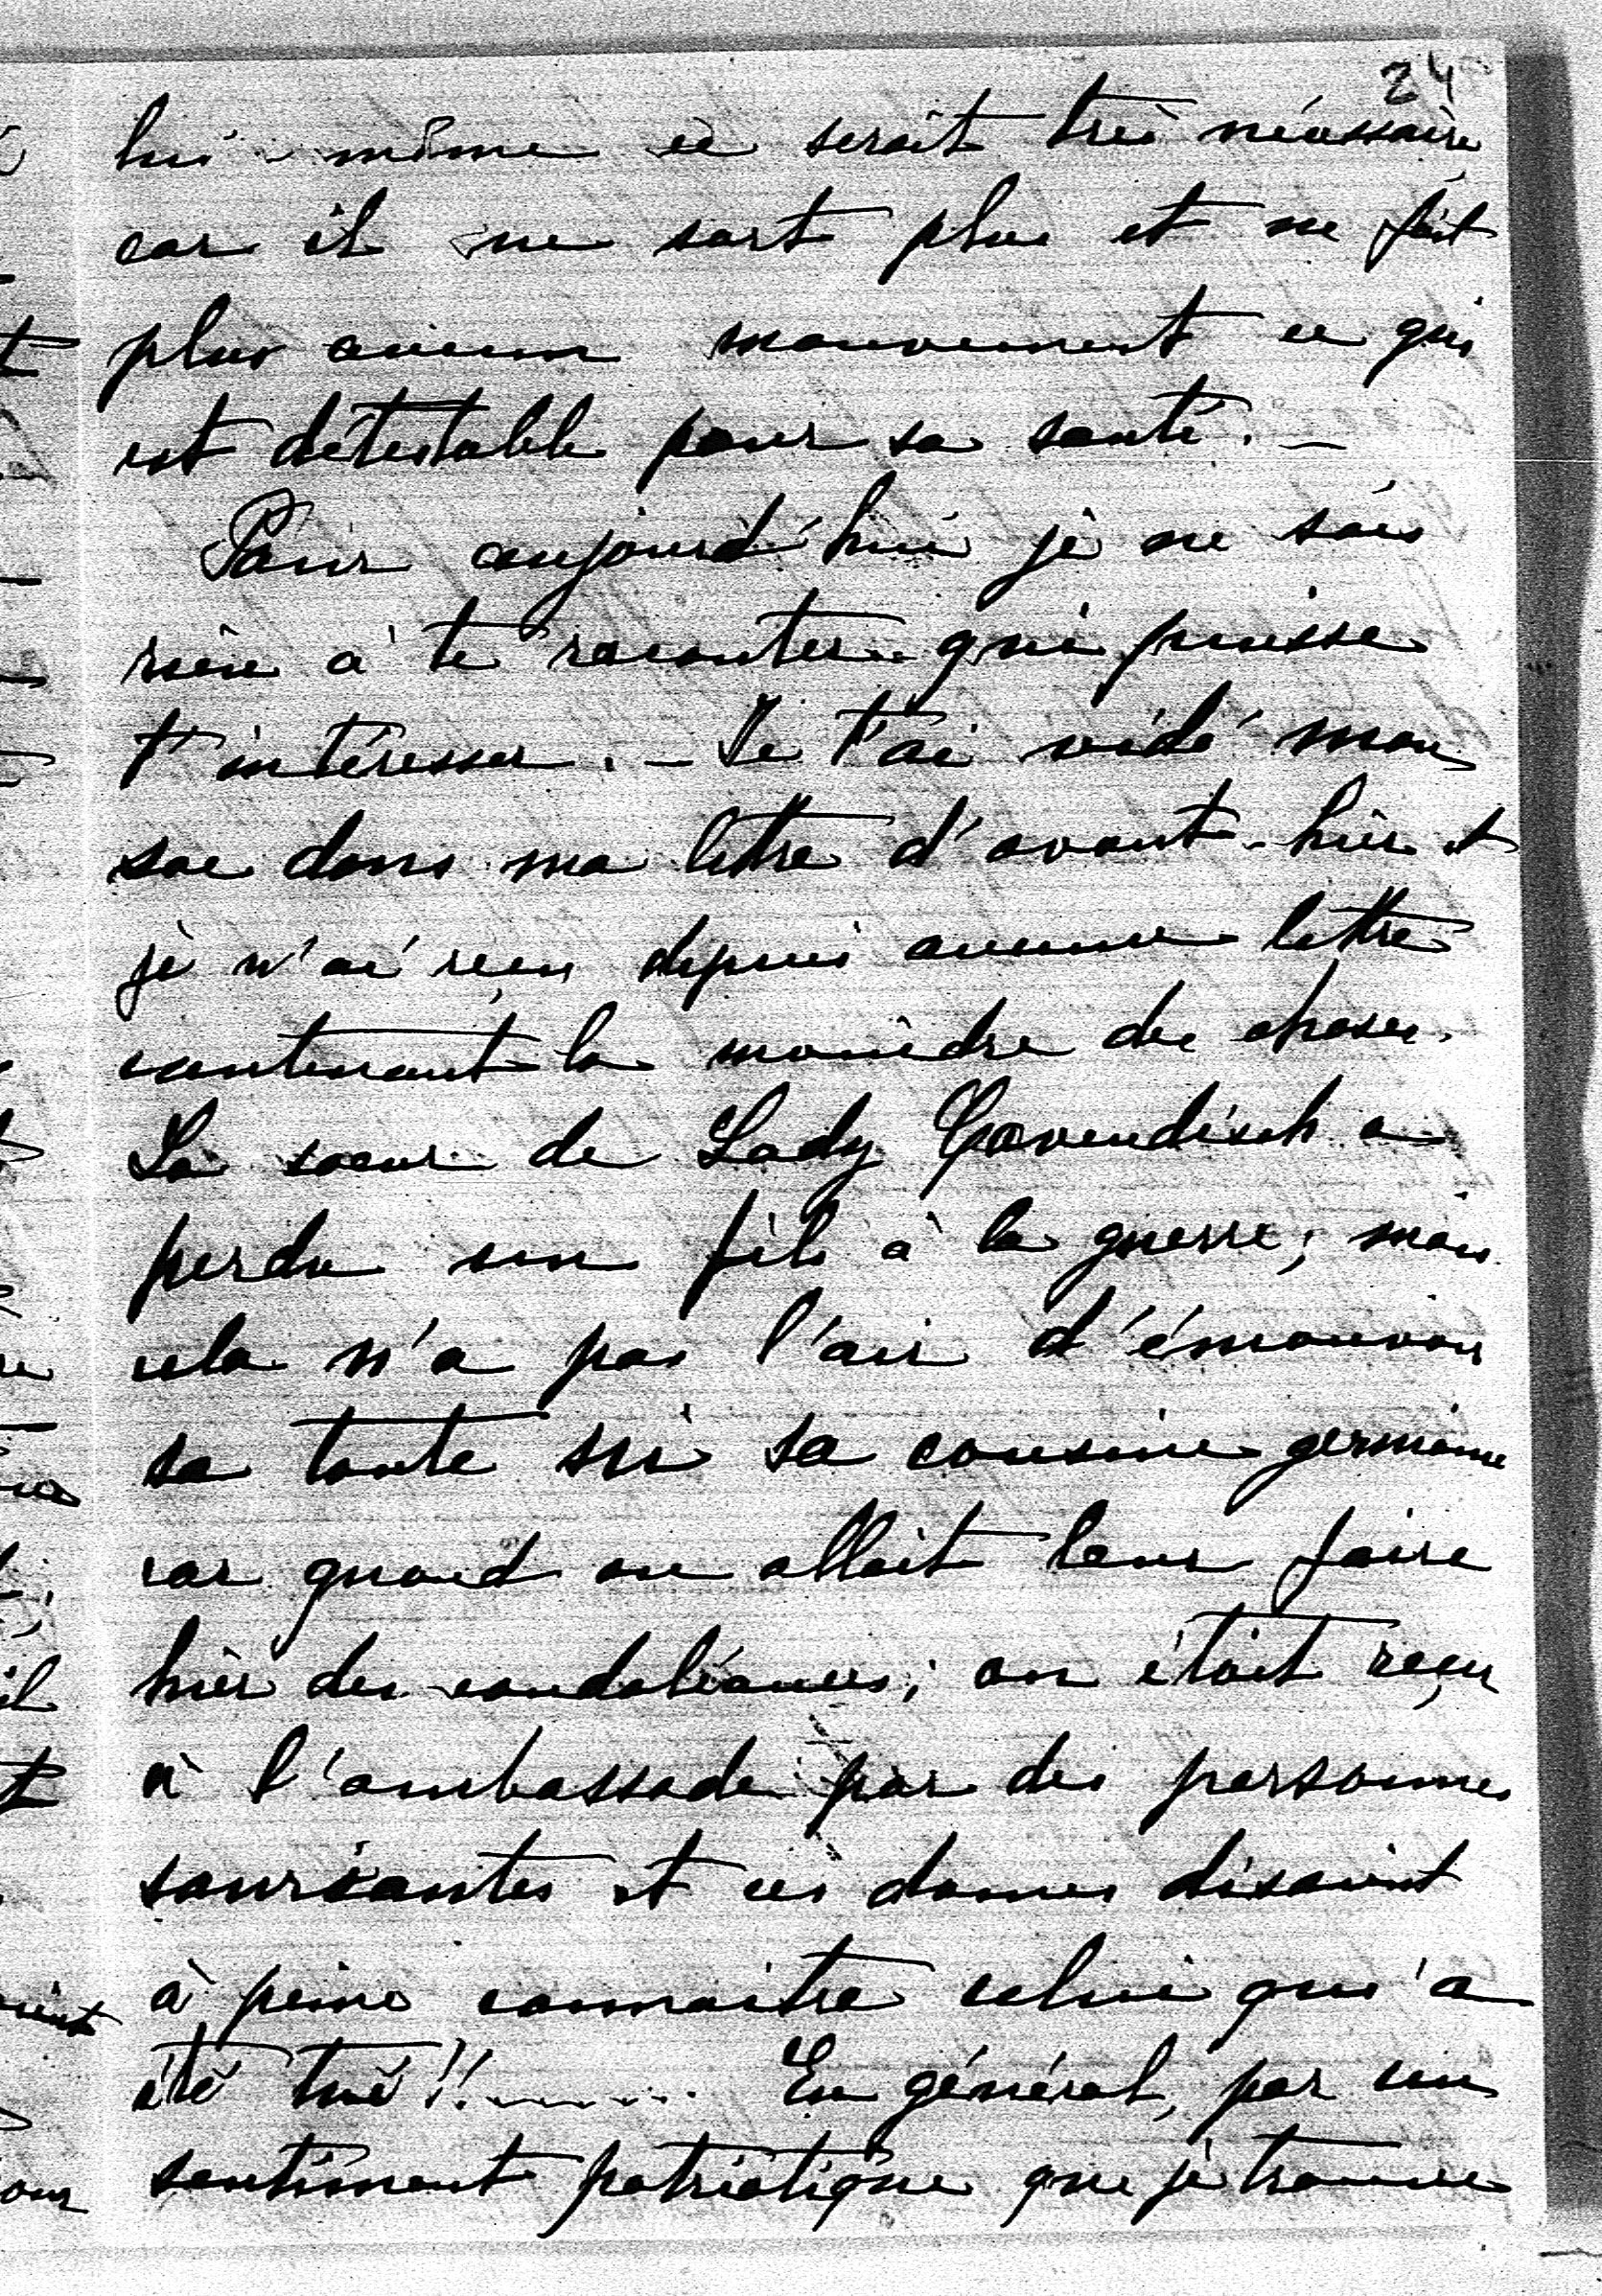 24
lui-même ce serait très nécessaire
car il ne sort plus et ne fait
plus aucun mouvement ce qui
est détestable pour sa santé. —
Pour aujourd'hui je ne sais
rien à te raconter qui puisse
t'intéresser. — Je t'ai vidé mon
sac dans ma lettre d'avant-hier et
je n'ai reçu depuis aucune lettre
contenant la moindre des choses.
La soeur de Lady Cavendisch a
perdu un fils à la guerre; mais
cela n'a pas l'air d'émouvoir
sa tante ni sa cousine germaine
car quand on allait leur faire
hier des condoléances; on était reçu
à l'ambassade par des personnes
souriantes et ces dames disaient
à peine connaitre celui qui a
été tué!! ........ En général, par un
sentiment patriotique que je trouve